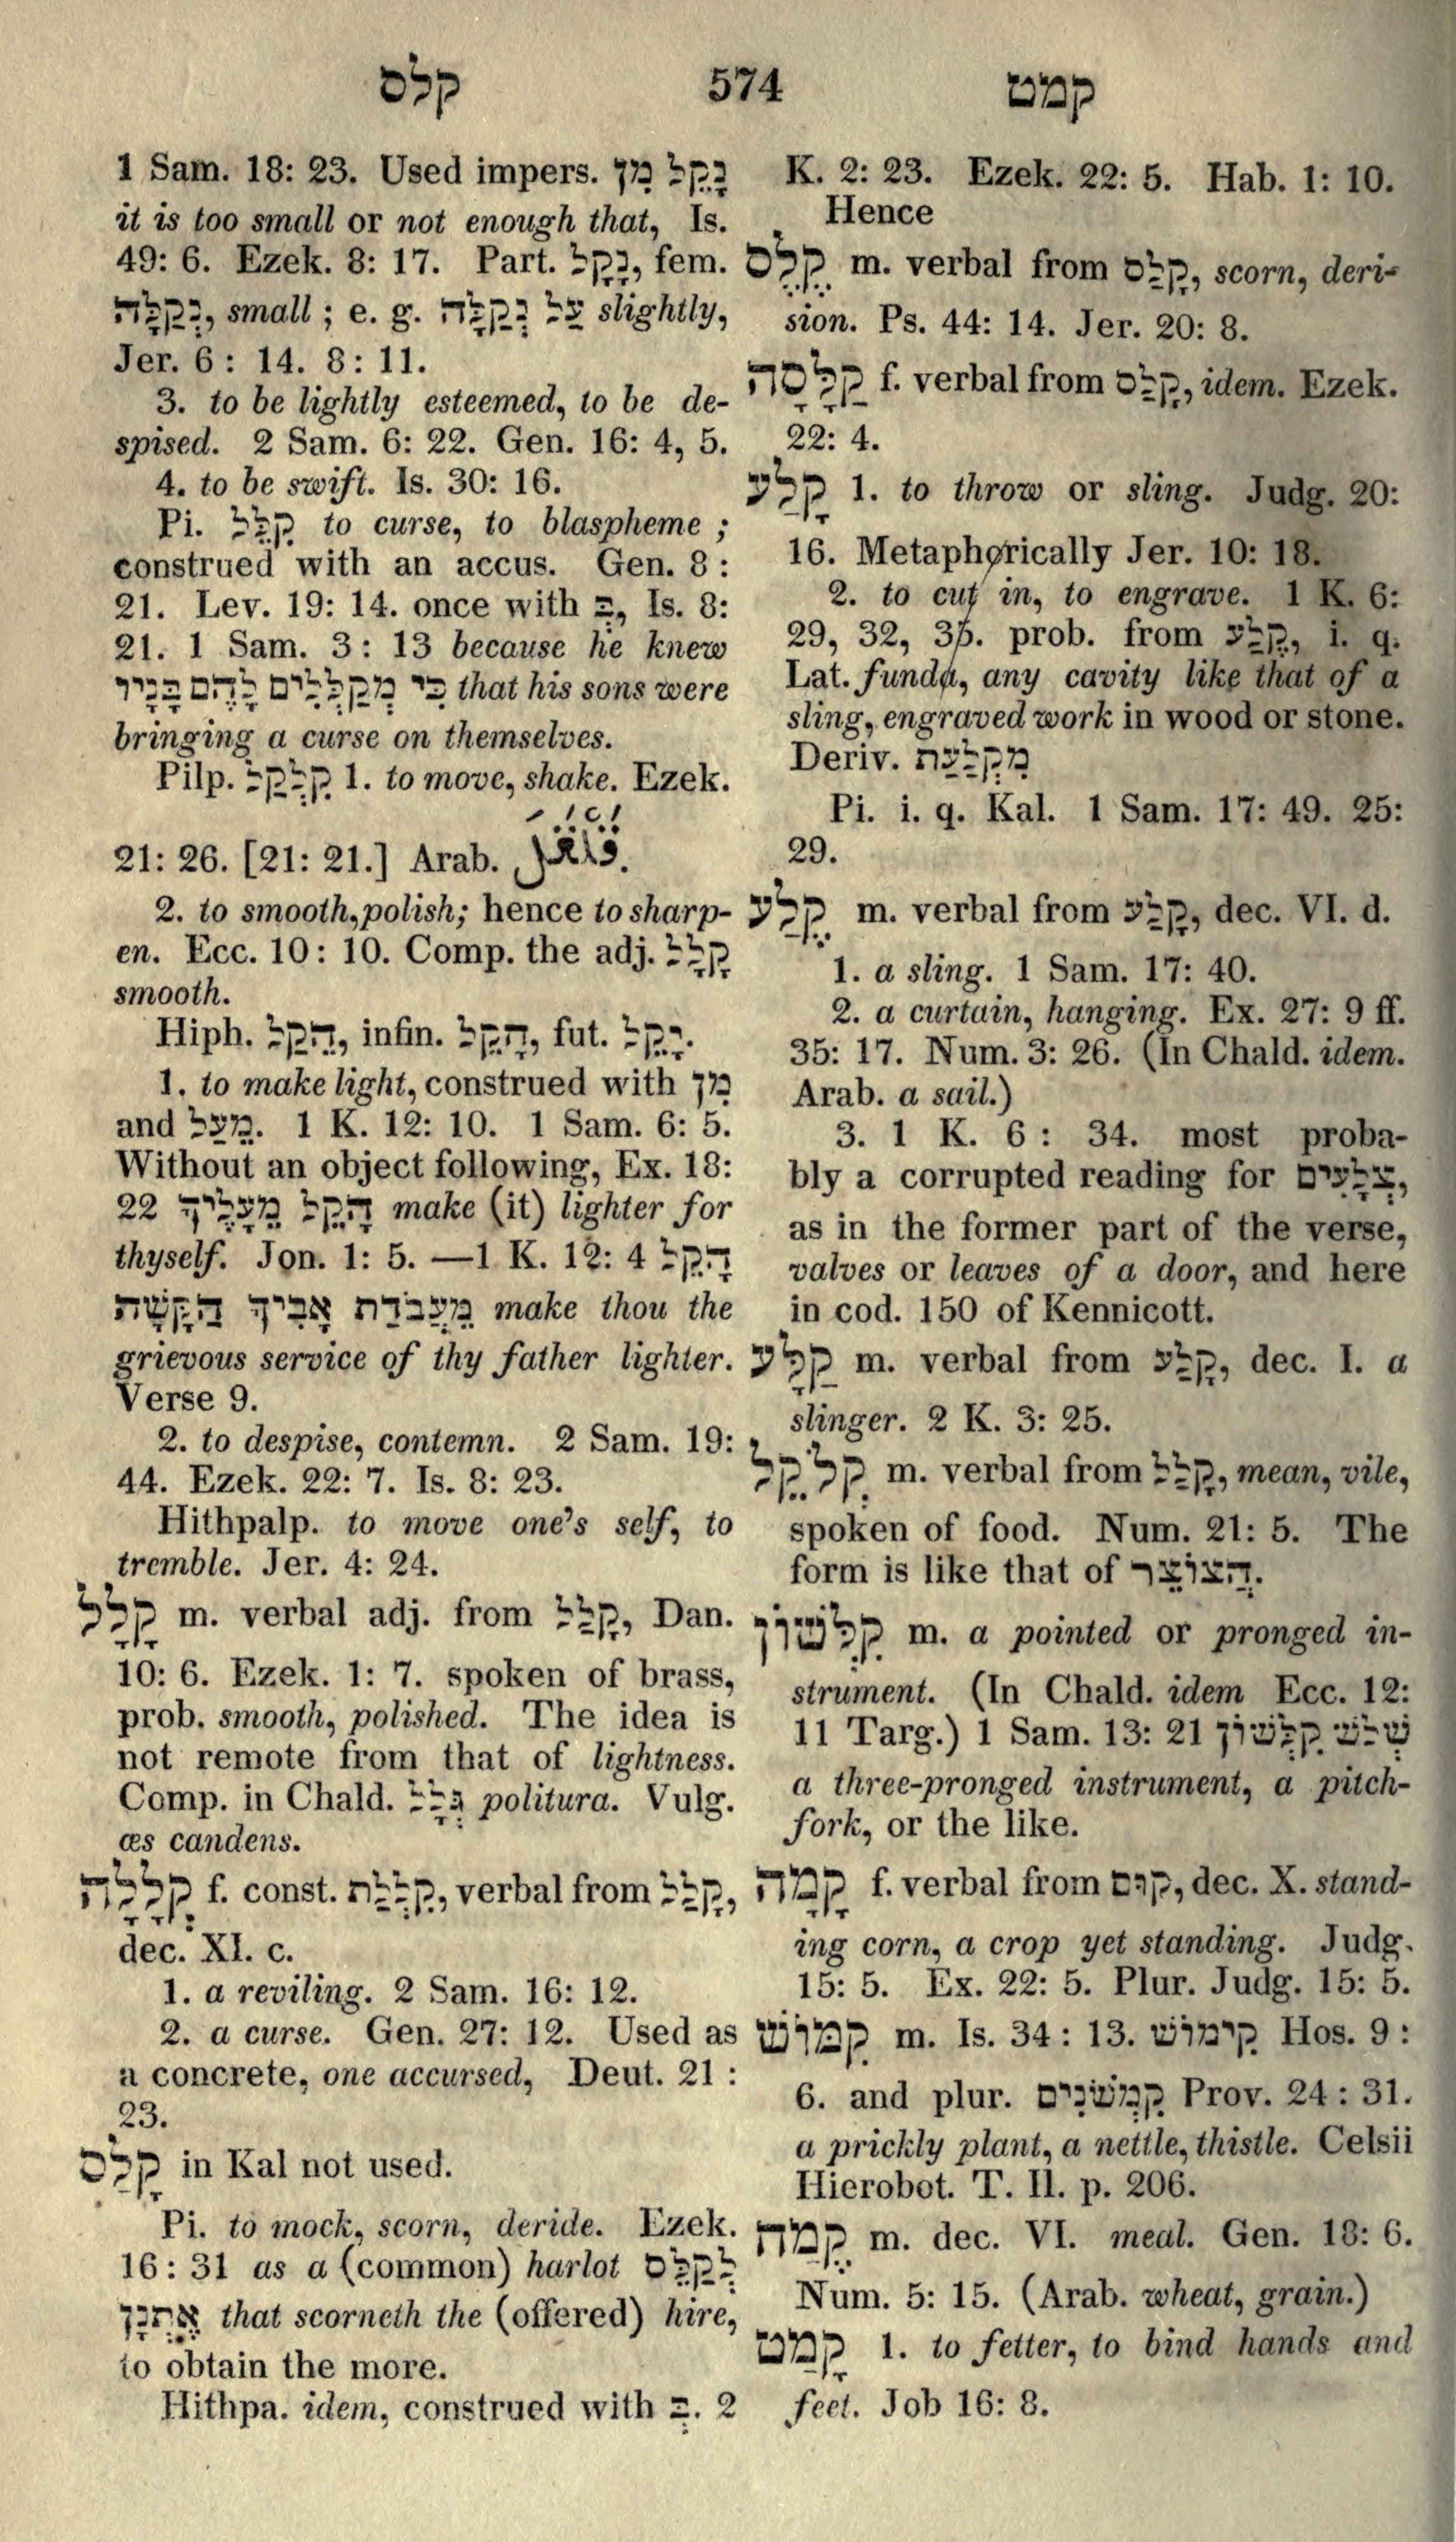 קלס 574 קמט
1 Sam. 18: 23. Used impers. נָקֵל מִן
it is too small or not enough that, Is.
49: 6. Ezek. 8: 17. Part. נָקָל, fem.
נְקַלָּה, small ; e. g. עַל נְקַלָּה slightly,
Jer. 6 : 14. 8 : 11.
3. to be lightly esteemed, to be de-
spised. 2 Sam. 6: 22. Gen. 16: 4, 5.
4. to be swift. Is. 30: 16.
Pi. קִלֵּל to curse, to blaspheme ;
construed with an accus. Gen. 8 :
21. Lev. 19: 14. once with בְּ, Is. 8:
21. 1 Sam. 3 : 13 because he knew
כִּי מְקַלְלִים לָהֶם בָּנָיו that his sons were
bringing a curse on themselves.
Pilp. קִלְקַל 1. to move, shake. Ezek.
21: 26. [21: 21.] Arab. قلقل.
2. to smooth, polish; hence to sharp-
en. Ecc. 10 : 10. Comp. the adj. קָלָל
smooth.
Hiph. הֵקַל, infin. הָקֵל, fut. יָקֵל.
1. to make light, construed with מִן
and מֵעַל. 1 K. 12: 10. 1 Sam. 6: 5.
Without an object following, Ex. 18:
22 הָקֵל מֵעָלֶיךָ make (it) lighter for
thyself. Jon. 1: 5. —1 K. 12: 4 הָקֵל
מֵעֲבֹדַת אָבִיךָ הַקָּשָׁה make thou the
grievous service of thy father lighter.
Verse 9.
2. to despise, contemn. 2 Sam. 19:
44. Ezek. 22: 7. Is. 8: 23.
Hithpalp. to move one's self, to
tremble. Jer. 4: 24.
קָלָל m. verbal adj. from קָלַל, Dan.
10: 6. Ezek. 1: 7. spoken of brass,
prob. smooth, polished. The idea is
not remote from that of lightness.
Comp. in Chald. גְּלָל politura. Vulg.
æs candens.
קְלָלָה f. const. קִלְלַת, verbal from קָלַל,
dec. XI. c.
1. a reviling. 2 Sam. 16: 12.
2. a curse. Gen. 27: 12. Used as
a concrete, one accursed, Deut. 21 :
23.
קָלַס in Kal not used.
Pi. to mock, scorn, deride. Ezek.
16 : 31 as a (common) harlot לְקַלֵּס
אֶתְנָן that scorneth the (offered) hire,
to obtain the more.
Hithpa. idem, construed with בְּ. 2
K. 2: 23. Ezek. 22: 5. Hab. 1: 10.
Hence
קֶלֶס m. verbal from קָלַס, scorn, deri-
sion. Ps. 44: 14. Jer. 20: 8.
קַלָּסָה f. verbal from קָלַס, idem. Ezek.
22: 4.
קָלַע 1. to throw or sling. Judg. 20:
16. Metaphorically Jer. 10: 18.
2. to cut in, to engrave. 1 K. 6:
29, 32, 35. prob. from קֶלַע, i. q.
Lat. funda, any cavity like that of a
sling, engraved work in wood or stone.
Deriv. מִקְלַעַת
Pi. i. q. Kal. 1 Sam. 17: 49. 25:
29.
קֶלַע m. verbal from קָלַע, dec. VI. d.
1. a sling. 1 Sam. 17: 40.
2. a curtain, hanging. Ex. 27: 9 ff.
35: 17. Num. 3: 26. (In Chald. idem.
Arab. a sail.)
3. 1 K. 6 : 34. most proba-
bly a corrupted reading for צְלָעִים,
as in the former part of the verse,
valves or leaves of a door, and here
in cod. 150 of Kennicott.
קַלָּע m. verbal from קָלַע, dec. I. a
slinger. 2 K. 3: 25.
קְלֹקֵל m. verbal from קָלַל, mean, vile,
spoken of food. Num. 21: 5. The
form is like that of הֲצוֹצֵר.
קִלְּשׁוֹן m. a pointed or pronged in-
strument. (In Chald. idem Ecc. 12:
11 Targ.) 1 Sam. 13: 21 שְׁלֹשׁ קִלְּשׁוֹן
a three-pronged instrument, a pitch-
fork, or the like.
קָמָה f. verbal from קוּם, dec. X. stand-
ing corn, a crop yet standing. Judg.
15: 5. Ex. 22: 5. Plur. Judg. 15: 5.
קִמּוֹשׁ m. Is. 34 : 13. קִימוֹשׁ Hos. 9 :
6. and plur. קִמְּשֹׁנִים Prov. 24 : 31.
a prickly plant, a nettle, thistle. Celsii
Hierobot. T. II. p. 206.
קֶמַח m. dec. VI. meal. Gen. 18: 6.
Num. 5: 15. (Arab. wheat, grain.)
קָמַט 1. to fetter, to bind hands and
feet. Job 16: 8.